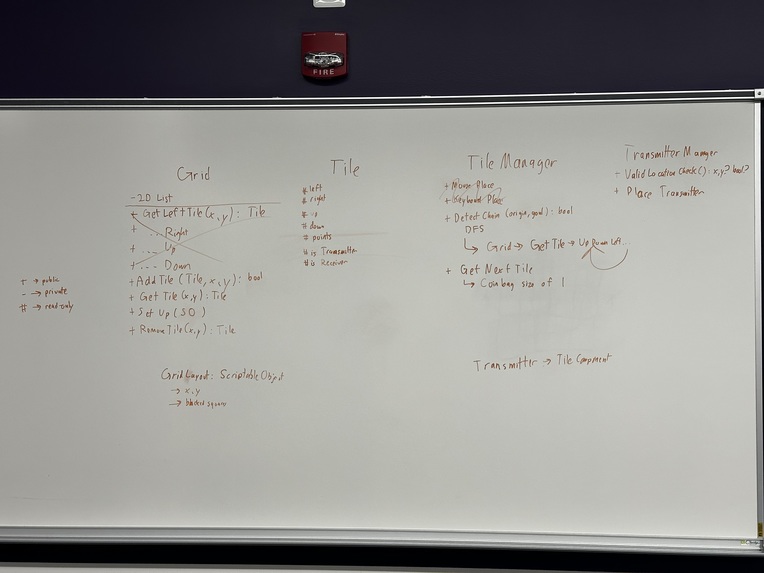 FIRE
+ → public
- → private
# → read-only
Grid
- 2D List
+ Get Left Tile (x, y) : Tile
+ ... Right
+ ... Up
+ ... Down
+ Add Tile (Tile, x, y) : bool
+ Get Tile (x, y) : Tile
+ Set Up (SO)
+ Remove Tile (x, y) : Tile
Grid Layout : Scriptable Object
→ x, y
→ blocked squares
Tile
# left
# right
# up
# down
# points
# is Transmitter
# is Receiver
Tile Manager
+ Mouse Place
+ Keyboard Place
+ Detect Chain (origin, goal) : bool
DFS
↳ Grid → Get Tile → Up Down Left...
+ Get Next Tile
↳ Coin bag size of 1
Transmitter → Tile Component
Transmitter Manager
+ Valid Location Check () : x, y? bool?
+ Place Transmitter